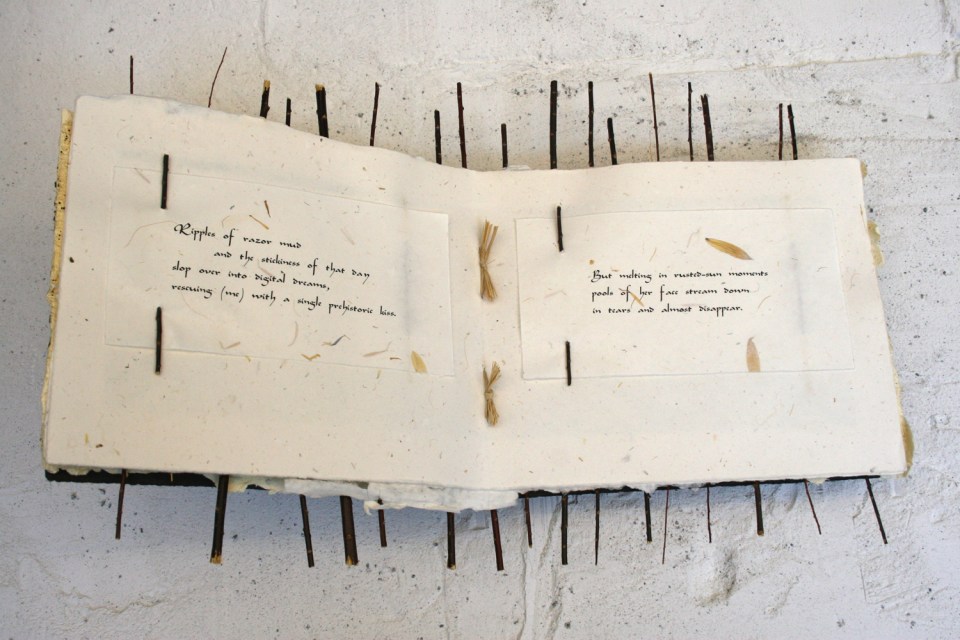 Ripples of razor mud
and the stickiness of that day
slop over into digital dreams,
rescuing (me) with a single prehistoric kiss.
But melting in rusted-sun moments
pools of her face stream down
in tears and almost disappear.